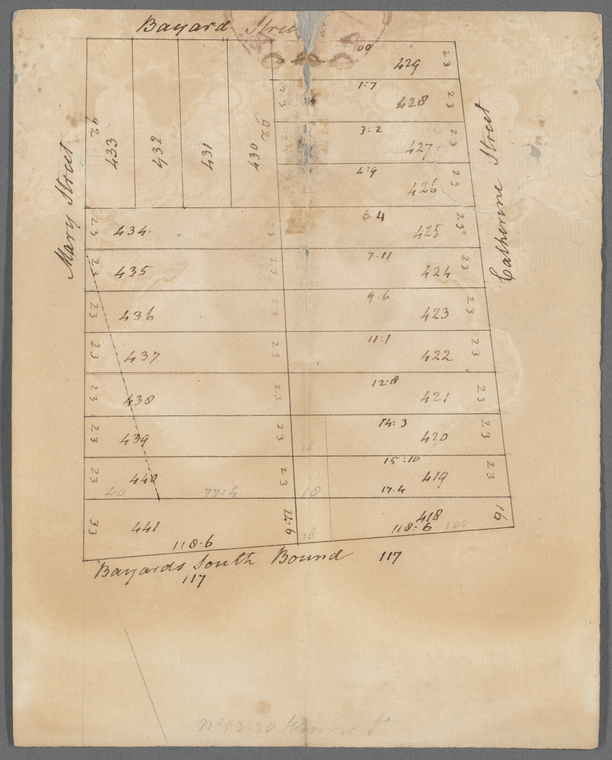 Bayard Street
Mary Street
Catherine Street
92
433
432
431
92
430
00
429
23
23
1:7
428
23
3:2
427
23
4:9
426
23
23
434
23
6:4
425
23
23
435
23
7:11
424
23
23
436
23
9:6
423
23
23
437
23
11:1
422
23
23
438
23
12:8
421
23
23
439
23
18
14:3
420
23
23
440
40
77:4
23
18
15:10
419
17:4
23
33
441
118:6
24:6
18
418
118:6
100
16
Bayards South Bound 117
117